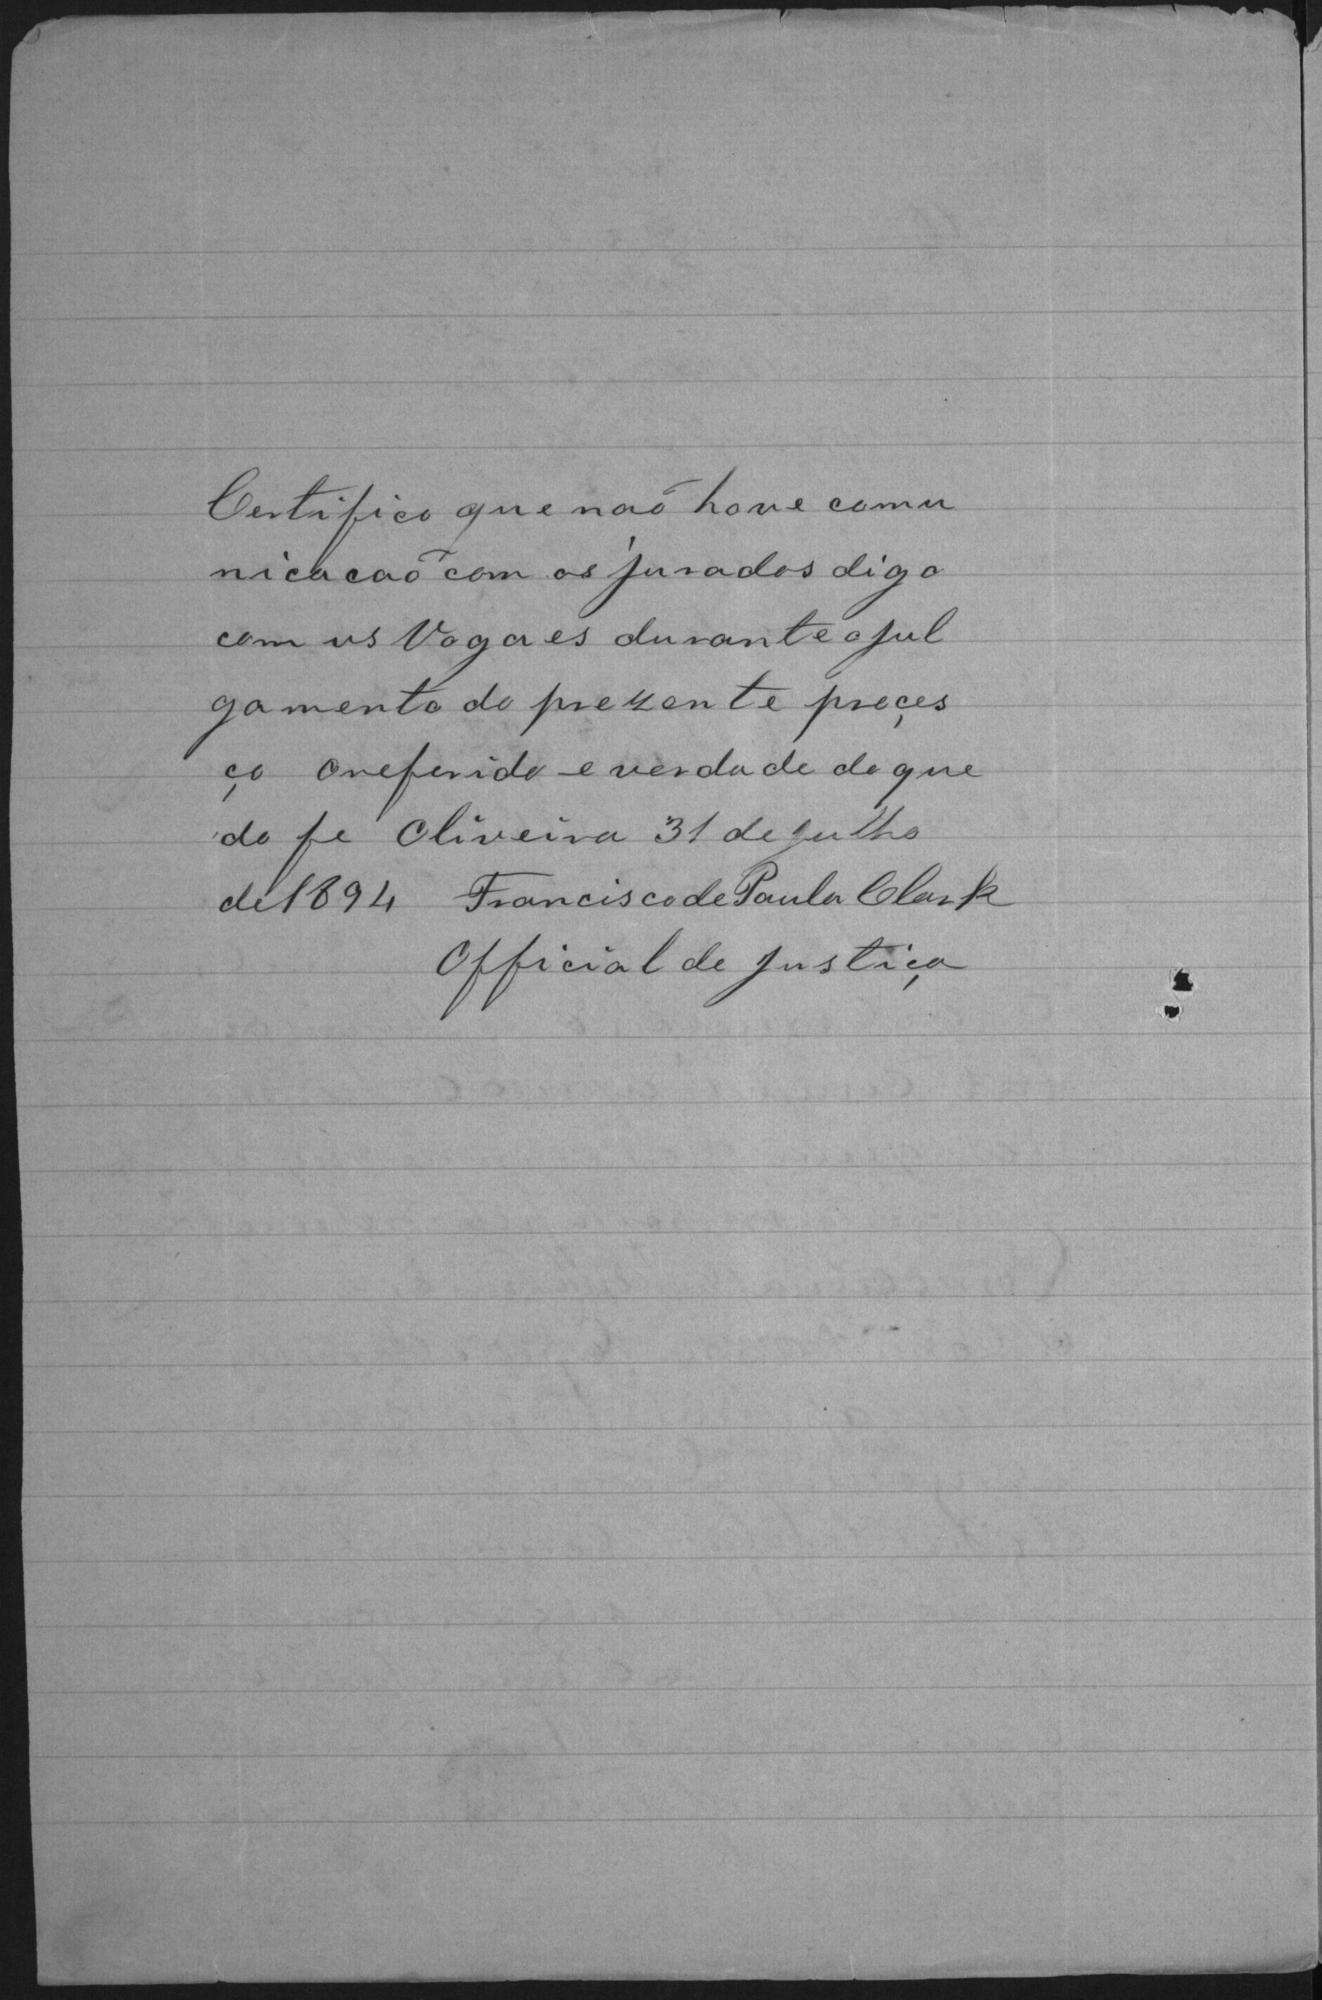 Certifico que naõ hove comu
nicacaõ com os jurados digo
com us Vogaes durante o jul
gamento do prezente proçes
ço o referido e verdade do que
do fe Oliveira 31 de julho
de 1894 Francisco de Paula Clark
Official de justiça